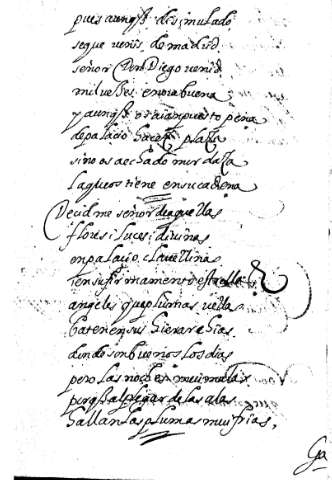 pues aunq̃ disimulado
se que venis de madrid
señor Don Diego venid
mil veses enora buena
y aunq̃ os aian puesto pena
de palacio gacetas plaza
si no os a echado mordaza
la q̃ os tiene en su cadena
Decid me señor de aquellas
flores i luces divinas
en palacio clavellinas
i en su firmamento estrellas
angeles que plumas bellas
baten en sus hierarchias
dando son buenos los dias
pero las noches mui malas
porq̃ al plegar de las alas
hallan las plumas muy frias,
Ga